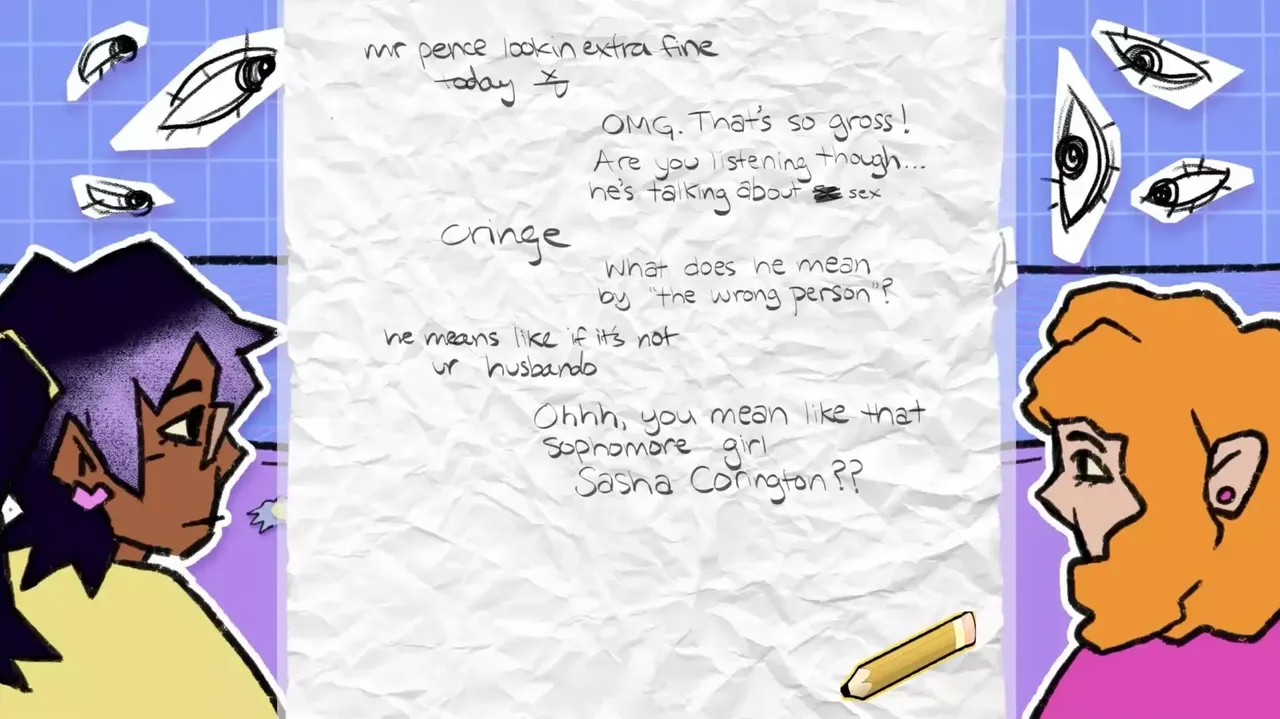 mr pence lookin extra fine
today
OMG. That's so gross!
Are you listening though...
he's talking about sex
cringe
What does he mean
by "the wrong person"?
he means like if it's not
ur husbando
Ohhh, you mean like that
sophomore girl
Sasha Corington??